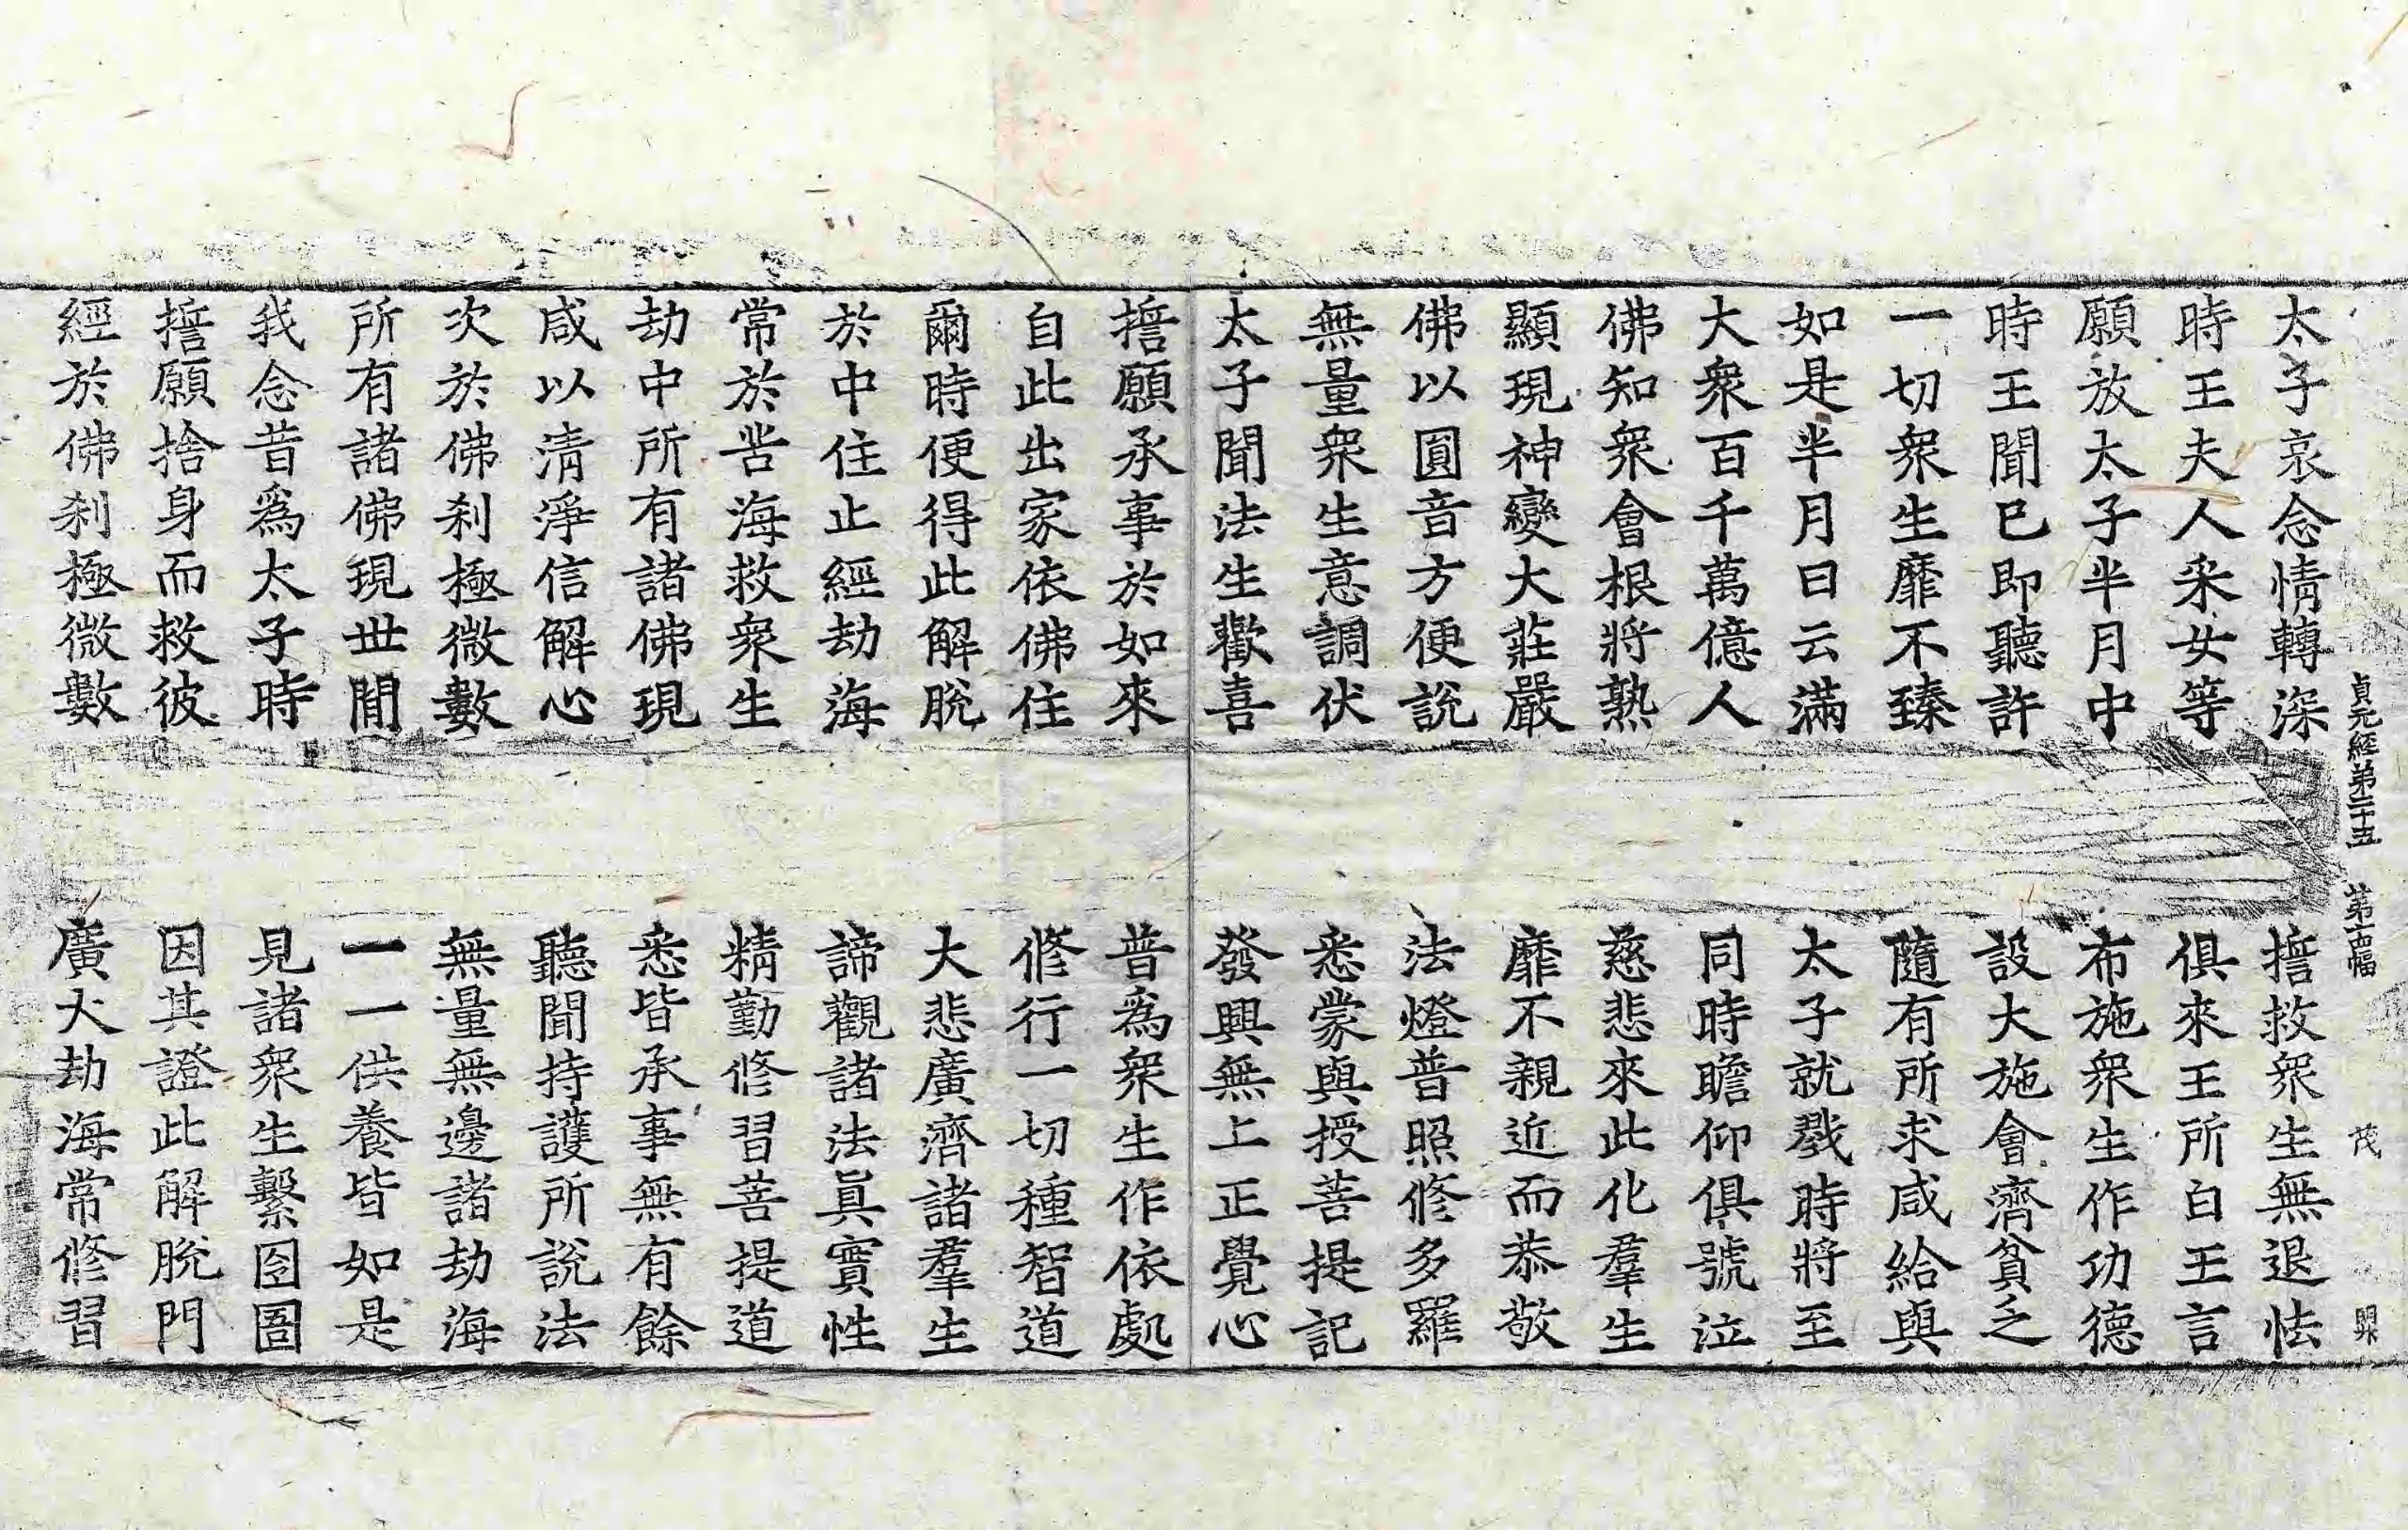 貞元經第二十五 第十四幅 茂
太子哀念情轉深 擔救衆生無退怯
時王夫人采女等 俱來王所白王言
願放太子半月中 布施衆生作功德
時王聞已即聽許 設大施會濟貧乏
一切衆生靡不臻 隨有所求咸給與
如是半月日云滿 太子就戮時將至
大衆百千萬億人 同時瞻仰俱號泣
佛知衆會根將熟 慈悲來此化羣生
顯現神變大莊嚴 靡不親近而恭敬
佛以圓音方便説 法燈普照修多羅
無量衆生意調伏 悉蒙與授菩提記
太子聞法生歡喜 發興無上正覺心
擔願承事於如來 普爲衆生作依處
自此出家依佛住 修行一切種智道
爾時便得此解脫 大悲廣濟諸羣生
於中住止經劫海 諦觀諸法眞實性
常於苦海救衆生 精勤修習菩提道
劫中所有諸佛現 悉皆承事無有餘
咸以清淨信解心 聽聞持護所說法
次於佛刹極微數 無量無邊諸劫海
所有諸佛現世間 一一供養皆如是
我念昔爲太子時 見諸衆生繫囹圄
擔願捨身而救彼 因其證此解脫門
經於佛刹極微數 廣大劫海常修習